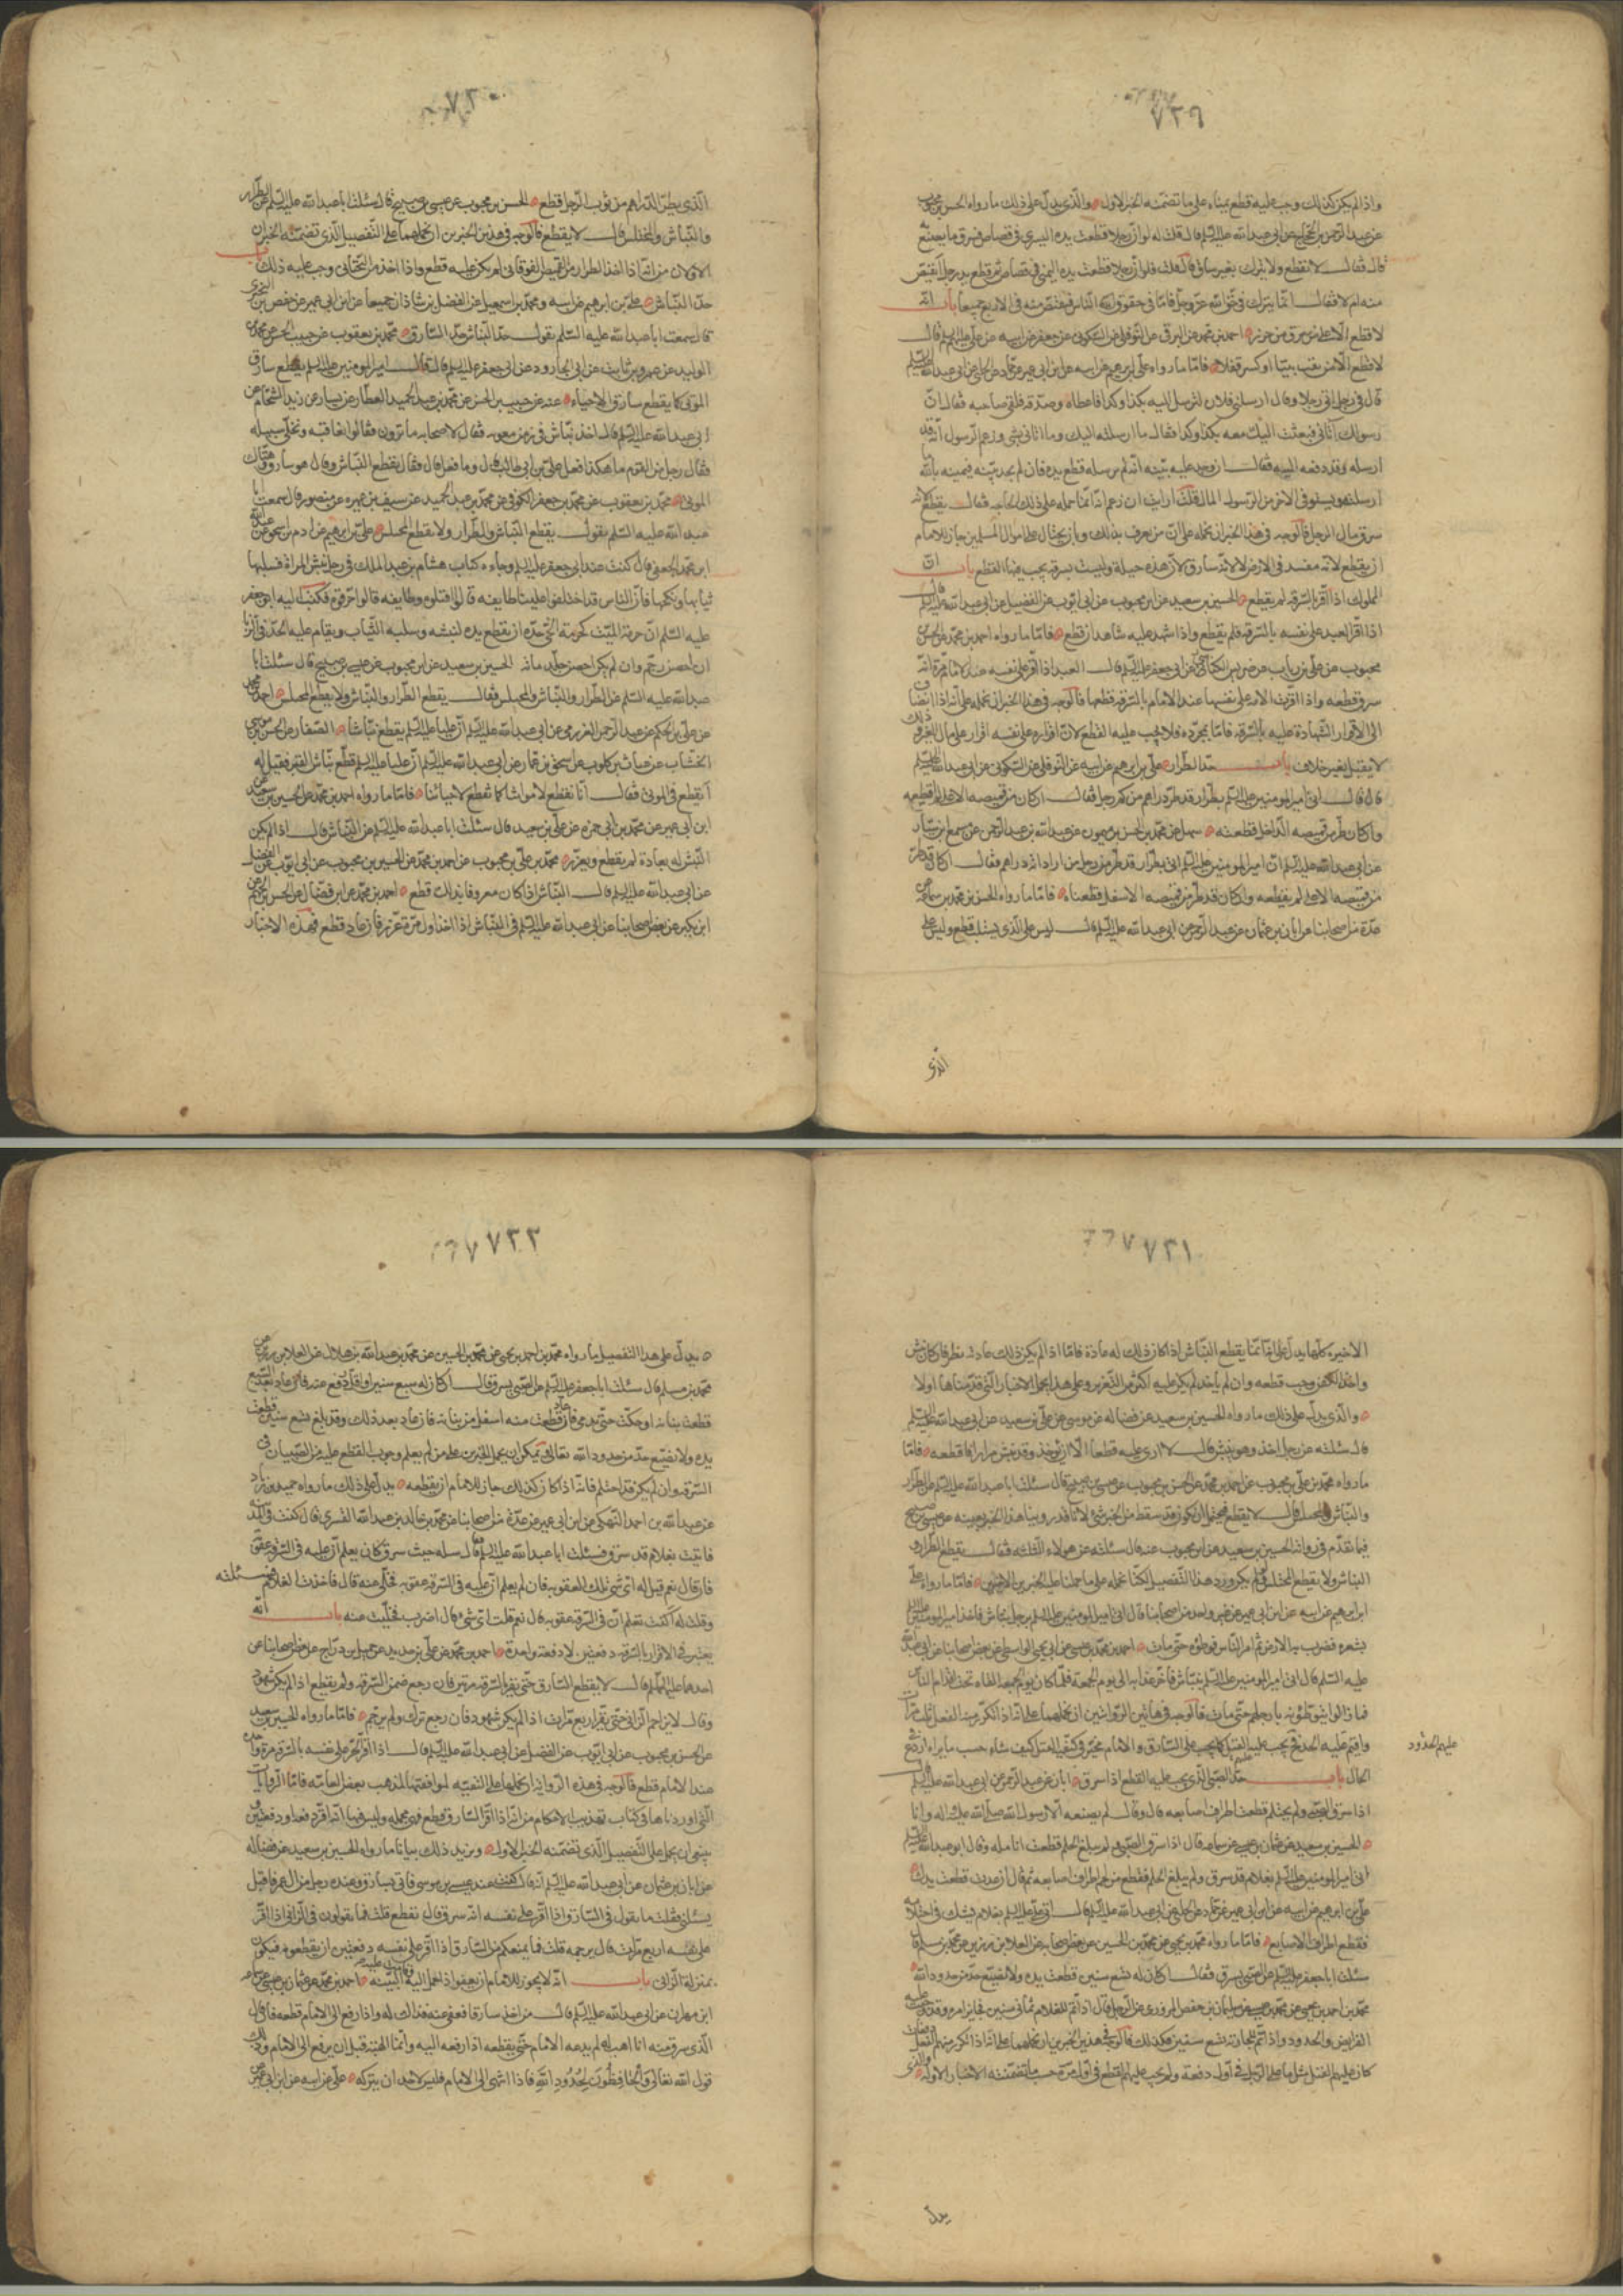 ٧٢٩
واذا لم يكن كذلك وجب عليه قطع يمناه على ما تضمنه الخبر الاول والذى يدل على ذلك ما رواه الحسن بن محبوب
عن عبد الرحمن بن الحجاج عن ابى عبد الله عليه السلم قال قلت له لو ان رجلا قطعت يده اليسرى فى قصاص فسرق ما يصنع به
قال فقال لا يقطع ولا يترك بغير ساق قال قلت فلو ان رجلا قطعت يده اليمنى فى قصاص ثم قطع يد رجل ايقتص
منه ام لا فقال انما يترك فى حق الله عز وجل فاما فى حقوق الناس فيقتص منه فى الاربع جميعا باب انه
لا قطع الا على من سرق من حرز احمد بن محمد عن البرقى عن النوفلى عن السكونى عن جعفر عن ابيه عن على عليهم السلم قال
لا يقطع الا من نقب بيتا او كسر قفلا فاما ما رواه على بن ابرهيم عن ابيه عن ابن ابى عمير عن حماد عن الحلبى عن ابى عبد الله عليه السلم
قال فى رجل اتى رجلا وقال ارسلنى فلان اليك لترسل اليه بكذا وكذا فاعطاه وصدقه فلقى صاحبه فقال ان
رسولك اتانى فبعثت اليك معه بكذا وكذا فقال ما ارسلته اليك وما اتانى بشى وزعم الرسول انه قد
ارسله وقد دفعه اليه فقال ان وجد عليه بينة انه لم يرسله قطع يده فان لم يجد بينة فيمينه بالله ما
ارسلته ويستوفى الاخر من الرسول المال قلت ارايت ان زعم انه انما حمله على ذلك الحاجة فقال يقطع لانه
سرق مال الرجل فالوجه فى هذا الخبر ان نحمله على ان من يعرف بذلك وبان يحتال على اموال المسلمين جاز للامام
ان يقطع لانه مفسد فى الارض لا لانه سارق لان هذه حيلة وليست بسرقة يجب فيها القطع باب ان
المملوك اذا اقر بالسرقة لم يقطع الحسين بن سعيد عن ابن محبوب عن ابى ايوب عن الفضيل عن ابى عبد الله عليه السلم قال
اذا اقر العبد على نفسه بالسرقة لم يقطع واذا شهد عليه شاهدان قطع فاما ما رواه احمد بن محمد عن الحسن بن
محبوب عن على بن رياب عن ضريس الكناسى عن ابى جعفر عليه السلم قال العبد اذا اقر على نفسه عند الامام مرة انه
سرق قطعه واذا اقرت الامة على نفسها عند الامام بالسرقة قطعها فالوجه فى هذا الخبر ان نحمله على انه اذا انضاف
الى الاقرار الشهادة عليه بالسرقة فاما بمجرده فلا يجب عليه القطع لان اقراره على نفسه اقرار على مال الغير وذلك
لا يقبل بغير خلاف باب حد الطرار على بن ابرهيم عن ابيه عن النوفلى عن السكونى عن ابى عبد الله عليه السلم
قال قال اتى امير المومنين عليه السلم بطرار قد طر دراهم من كم رجل فقال ان كان من قميصه الاعلى لم اقطعه
وان كان طر من قميصه الداخل قطعته سهل عن محمد بن الحسن بن شمون عن عبد الله بن عبد الرحمن عن مسمع ابى سيار
عن ابى عبد الله عليه السلم ان امير المومنين عليه السلم اتى بطرار قد طر من رجل من اردانه دراهم فقال ان كان قد طر
من قميصه الاعلى لم نقطعه وان كان قد طر من قميصه الاسفل قطعناه فاما ما رواه الحسن بن محمد بن سماعة عن
عدة من اصحابنا عن ابان بن عثمان عن عبد الرحمن عن ابى عبد الله عليه السلم قال ليس على الذى يستلب قطع وليس على
الذى
٧٣٠
الذى يطر الدراهم من ثوب الرجل قطع الحسن بن محبوب عن عيسى بن صبيح قال سئلت ابا عبد الله عليه السلم عن الطرار
والنباش والمختلس قال لا يقطع فالوجه فى هذين الخبرين ان نحملهما على التفصيل الذى تضمنه الخبران
الاولان من انه اذا اخذ الطرار من القميص الفوقانى لم يكن عليه قطع واذا اخذ من التحتانى وجب عليه ذلك باب
حد النباش على بن ابرهيم عن ابيه ومحمد بن اسمعيل عن الفضل بن شاذان جميعا عن ابن ابى عمير عن حفص بن البخترى
قال سمعت ابا عبد الله عليه السلم يقول حد النباش حد السارق محمد بن يعقوب عن حبيب بن الحسن عن محمد بن
الوليد عن عمرو بن ثابت عن ابى الجارود عن ابى جعفر عليه السلم قال قال امير المومنين عليه السلم يقطع سارق
الموتى كما يقطع سارق الاحياء عنه عن حبيب بن الحسن عن محمد بن عبد الحميد العطار عن يسار عن زيد الشحام عن
ابى عبد الله عليه السلم قال اخذ نباش فى زمن معوية فقال لاصحابه ما ترون فقالوا نعاقبه ونخلى سبيله
فقال رجل من القوم ما هكذا فعل على بن ابى طالب قال وما فعل قال فقال يقطع النباش وقال هو سارق وهتاك
الموتى محمد بن يعقوب عن محمد بن جعفر الكوفى عن محمد بن عبد الحميد عن سيف بن عميره عن منصور قال سمعت ابا
عبد الله عليه السلم يقول يقطع النباش والطرار ولا يقطع المختلس على بن ابرهيم عن ادم بن اسحق عن عبد الله
ابن محمد الجعفى قال كنت عند ابى جعفر عليه السلم وجاءه كتاب هشام بن عبد الملك فى رجل نبش امراة فسلبها
ثيابها ونكحها فان الناس قد اختلفوا علينا طايفه قالوا اقتلوه وطايفه قالوا احرقوه فكتب اليه ابو جعفر
عليه السلم ان حرمة الميت كحرمة الحى حده ان يقطع يده لنبشه وسلبه الثياب ويقام عليه الحد فى الزنا
ان احصن رجم وان لم يكن احصن جلد مائه الحسين بن سعيد عن ابن محبوب عن عيسى بن صبيح قال سئلت ابا
عبد الله عليه السلم عن الطرار والنباش والمختلس فقال يقطع الطرار والنباش ولا يقطع المختلس احمد بن محمد
عن على بن الحكم عن عبد الرحمن العرزمى عن ابى عبد الله عليه السلم ان عليا عليه السلم قطع نباشا الصفار عن الحسن بن موسى
الخشاب عن غياث بن كلوب عن اسحق بن عمار عن ابى عبد الله عليه السلم ان عليا عليه السلم قطع نباش القبر فقيل له
اتقطع فى الموتى فقال انا نقطع لامواتنا كما نقطع لاحيائنا فاما ما رواه احمد بن محمد عن الحسين بن سعيد عن
ابن ابى عمير عن محمد بن ابى حمزه عن على بن سعيد قال سئلت ابا عبد الله عليه السلم عن النباش قال اذا لم يكن
النبش له بعادة لم يقطع ويعزر محمد بن على بن محبوب عن احمد بن محمد عن الحسين بن محبوب عن ابى ايوب عن الفضيل
عن ابى عبد الله عليه السلم قال النباش اذا كان معروفا بذلك قطع احمد بن محمد عن ابن فضال عن الحسن بن الجهم عن
ابن بكير عن بعض اصحابنا عن ابى عبد الله عليه السلم فى النباش اذا اخذ اول مرة عزر فان عاد قطع فهذه الاخبار
٧٣١
الاخيره كلها يدل على انه انما يقطع النباش اذا كان ذلك له عادة فاما اذا لم يكن ذلك عادته نظر فان كان نبش
واخذ الكفن وجب قطعه وان لم ياخذ لم يكن عليه اكثر من التعزير وعلى هذا نحمل الاخبار التى قدمناها اولا
والذى يدل على ذلك ما رواه الحسين بن سعيد عن فضاله عن موسى عن على بن سعيد عن ابى عبد الله عليه السلم
قال سئلته عن رجل اخذ وهو ينبش قال لا ارى عليه قطعا الا ان يؤخذ وقد نبش مرارا فاقطعه فاما
ما رواه محمد بن على بن محبوب عن احمد بن محمد عن الحسن بن محبوب عن عيسى بن صبيح قال سئلت ابا عبد الله عليه السلم عن الطرار
والنباش والمختلس قال لا يقطع فيحتمل ان يكون قد سقط من الخبر شئ لانا قد روينا هذا الخبر بعينه عن عيسى بن صبيح
فيما تقدم فى رواية الحسين بن سعيد عن ابن محبوب عنه قال سئلته عن هولاء الثلثه فقال يقطع الطرار و
النباش ولا يقطع المختلس ولو لم يكن ورد هذا التفصيل لكنا نحمله على ما حملنا عليه الخبرين الاخيرين فاما ما رواه على
ابن ابرهيم عن ابيه عن ابن ابى عمير عن غير واحد من اصحابنا قال اتى امير المومنين عليه السلم برجل نباش فاخذ امير المومنين عليه السلم
بشعره فضرب به الارض ثم امر الناس فوطؤه حتى مات احمد بن محمد بن عيسى عن ابى يحيى الواسطى عن بعض اصحابنا عن ابى عبد الله
عليه السلم قال اتى امير المومنين عليه السلم بنباش فاخر عذابه الى يوم الجمعة فلما كان يوم الجمعه القاه تحت اقدام الناس
فما زالوا يتوطؤنه بارجلهم حتى مات فالوجه فى هاتين الروايتين ان نحملهما على انه اذا تكرر منه الفعل ثلث مرات
واقيم عليه الحد فح يجب عليه القتل كما يجب على السارق والامام مخير فى كيفية القتل كيف شاء حسب ما يراه اردع فى
الحال باب حد الصبى الذى يجب عليه القطع اذا سرق ابان عن عبد الرحمن عن ابى عبد الله عليه السلم قال
اذا سرق الصبى ولم يحتلم قطعت اطراف اصابعه قال وقال لم يصنعه الا رسول الله صلى الله عليه واله وانا
الحسين بن سعيد عن عثمان بن عيسى عن سماعة قال اذا سرق الصبى ولم يبلغ الحلم قطعت انامله وقال ابو عبد الله عليه السلم
اتى امير المومنين عليه السلم بغلام قد سرق ولم يبلغ الحلم فقطع من لحم اطراف اصابعه ثم قال ان عدت قطعت يدك
على بن ابرهيم عن ابيه عن ابن ابى عمير عن حماد عن الحلبى عن ابى عبد الله عليه السلم قال اتى على عليه السلم بغلام يشك فى احتلامه
فقطع اطراف الاصابع فاما ما رواه محمد بن يحيى عن محمد بن الحسين عن بعض اصحابه عن العلا بن رزين عن محمد بن مسلم قال
سئلت ابا جعفر عليه السلم عن الصبى يسرق فقال ان كان له تسع سنين قطعت يده ولا يضيع حد من حدود الله
محمد بن احمد بن يحيى عن محمد بن عيسى عن سليمان بن حفص المروزى عن الرجل قال اذا تم للغلام ثمانى سنين فجايز امره وقد وجبت عليه
الفرايض والحدود واذا تم للجارية تسع سنين فكذلك فالوجه فى هذين الخبرين ان نحملهما على انه اذا تكرر منهم الفعل
كان عليهم القتل مثل ما على الرجل فى اول دفعة ولم يجب عليهم القطع فى اول مرة حسب ما تضمنته الاخبار الاولة والذى
عليهم الحدود
يدل
٧٣٢
يدل على هذا التفصيل ما رواه محمد بن احمد بن يحيى عن محمد بن الحسين عن محمد بن عبد الله بن هلال عن العلا بن رزين عن
محمد بن مسلم قال سئلت ابا جعفر عليه السلم عن الصبى يسرق قال ان كان له سبع سنين او اقل دفع عنه فان عاد بعد السبع
قطعت بنانه او حكت حتى تدمى فان عاد قطعت منه اسفل من بنانه فان عاد بعد ذلك وقد بلغ تسع سنين قطعت
يده ولا يضيع حد من حدود الله تعالى ويمكن ان يحمل الخبرين على من لم يعلم وجوب القطع عليه من الصبيان فى
السرقه وان لم يكن قد احتلم فانه اذا كان كذلك جاز للامام ان يقطعه يدل على ذلك ما رواه حميد بن زياد
عن عبيد الله بن احمد النهيكى عن ابن ابى عمير عن عدة من اصحابنا عن محمد بن خالد بن عبد الله القسرى قال كنت على المدينة
فاتيت بغلام قد سرق فسئلت ابا عبد الله عليه السلم عنه قال سله حيث سرق كان يعلم ان عليه فى السرقة عقوبة
فان قال نعم قيل له اى شئ تلك العقوبه فان لم يعلم ان عليه فى السرقه عقوبه فخلى عنه قال فاخذت الغلام فسئلته
وقلت له اكنت تعلم ان فى السرقه عقوبه قال نعم قلت اى شى قال اضرب فخليت عنه باب انه
يعتبر فى الاقرار بالسرقة دفعتين لا دفعة واحدة احمد بن محمد عن على بن حديد عن جميل بن دراج عن بعض اصحابنا عن
احدهما عليهما السلم قال لا يقطع السارق حتى يقر بالسرقه مرتين فان رجع ضمن السرقه ولم يقطع اذا لم يكن شهود
وقال لا يرجم الزانى حتى يقر اربع مرات اذا لم يكن شهود فان رجع ترك ولم يرجم فاما ما رواه الحسين بن سعيد
عن الحسن بن محبوب عن ابى ايوب عن الفضيل عن ابى عبد الله عليه السلم قال اذا اقر الحر على نفسه بالسرقة مرة واحدة
عند الامام قطع فالوجه فى هذه الرواية ان نحملها على التقيه لموافقتها لمذهب بعض العامه فاما الروايات
التى اوردناها فى كتاب تهذيب الاحكام من انه اذا اقر السارق قطع فهى مجمله وليس فيها انه اقر دفعه او دفعتين و
ينبغى ان يحمل على التفصيل الذى تضمنه الخبر الاول ويزيد ذلك بيانا ما رواه الحسين بن سعيد عن فضاله
عن ابان بن عثمان عن ابى عبد الله عليه السلم انه قال كنت عند عيسى بن موسى فاتى بسارق وعنده رجل من ال عمر فاقبل
يسئلنى فقلت ما يقول فى السارق اذا اقر على نفسه انه سرق قال يقطع قلت فما يقولون فى الزانى اذا اقر
على نفسه اربع مرات قال يرجمه قلت فما يمنعكم من السارق اذا اقر على نفسه دفعتين ان يقطعوه فيكون
بمنزلة الزانى باب انه لا يجوز للامام ان يعفو اذا حمل اليه وقامت عليه البينه احمد بن محمد عن عثمان بن عيسى عن سماعه
ابن مهران عن ابى عبد الله عليه السلم قال من اخذ سارقا فعفى عنه فذاك له واذا رفع الى الامام قطعه فان قال
الذى سرق منه انا اهب له لم يدعه الامام حتى يقطعه اذا رفعه اليه وانما الهبة قبل ان يرفع الى الامام وذلك
قول الله تعالى والحافظون لحدود الله فاذا انتهى الى الامام فليس لاحد ان يتركه على عن ابيه عن ابن ابى عمير عن